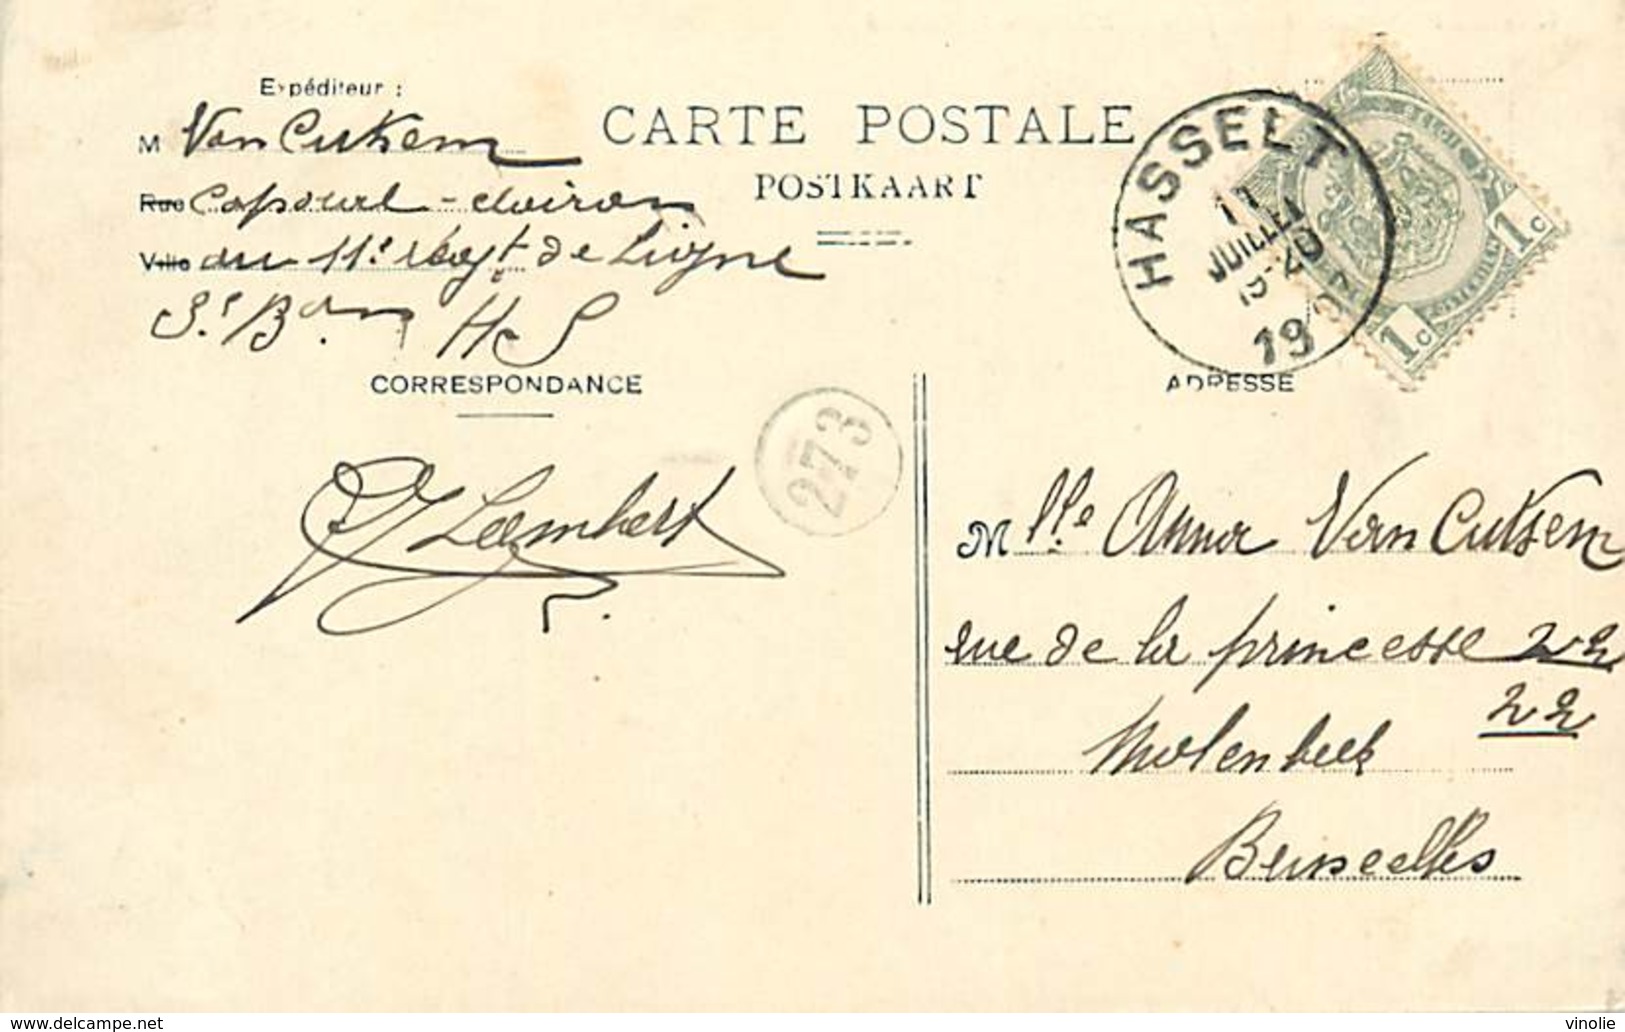 Expéditeur :
M Van Cutsem
Rue Caporal-clairon
Ville au 11e régt de Ligne
3e Bon H S
CARTE POSTALE
POSTKAART
HASSELT
11
JUILLET
19
1c
1c
CORRESPONDANCE
ADRESSE
273
Lambert
Mlle Anna Van Cutsem
rue de la princesse 22
22
Molenbeek
Bruxelles
delcampe.net
vinolie